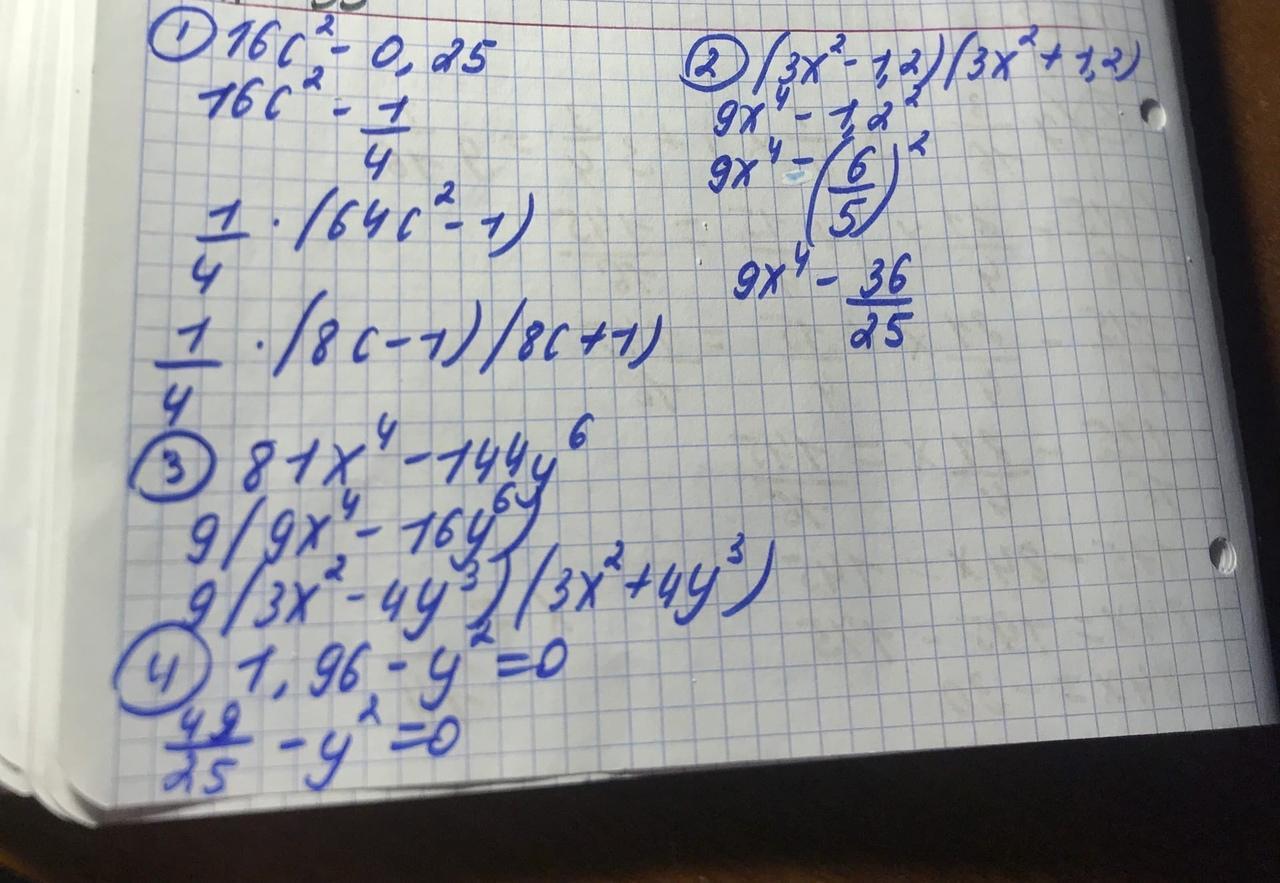 ① 16c² - 0,25
16c² - 1/4
1/4 · (64c² - 1)
1/4 · (8c - 1)(8c + 1)
② (3x² - 1,2)(3x² + 1,2)
9x⁴ - 1,2²
9x⁴ - (6/5)²
9x⁴ - 36/25
③ 81x⁴ - 144y⁶
9(9x⁴ - 16y⁶)
9(3x² - 4y³)(3x² + 4y³)
④ 1,96 - y² = 0
49/25 - y² = 0